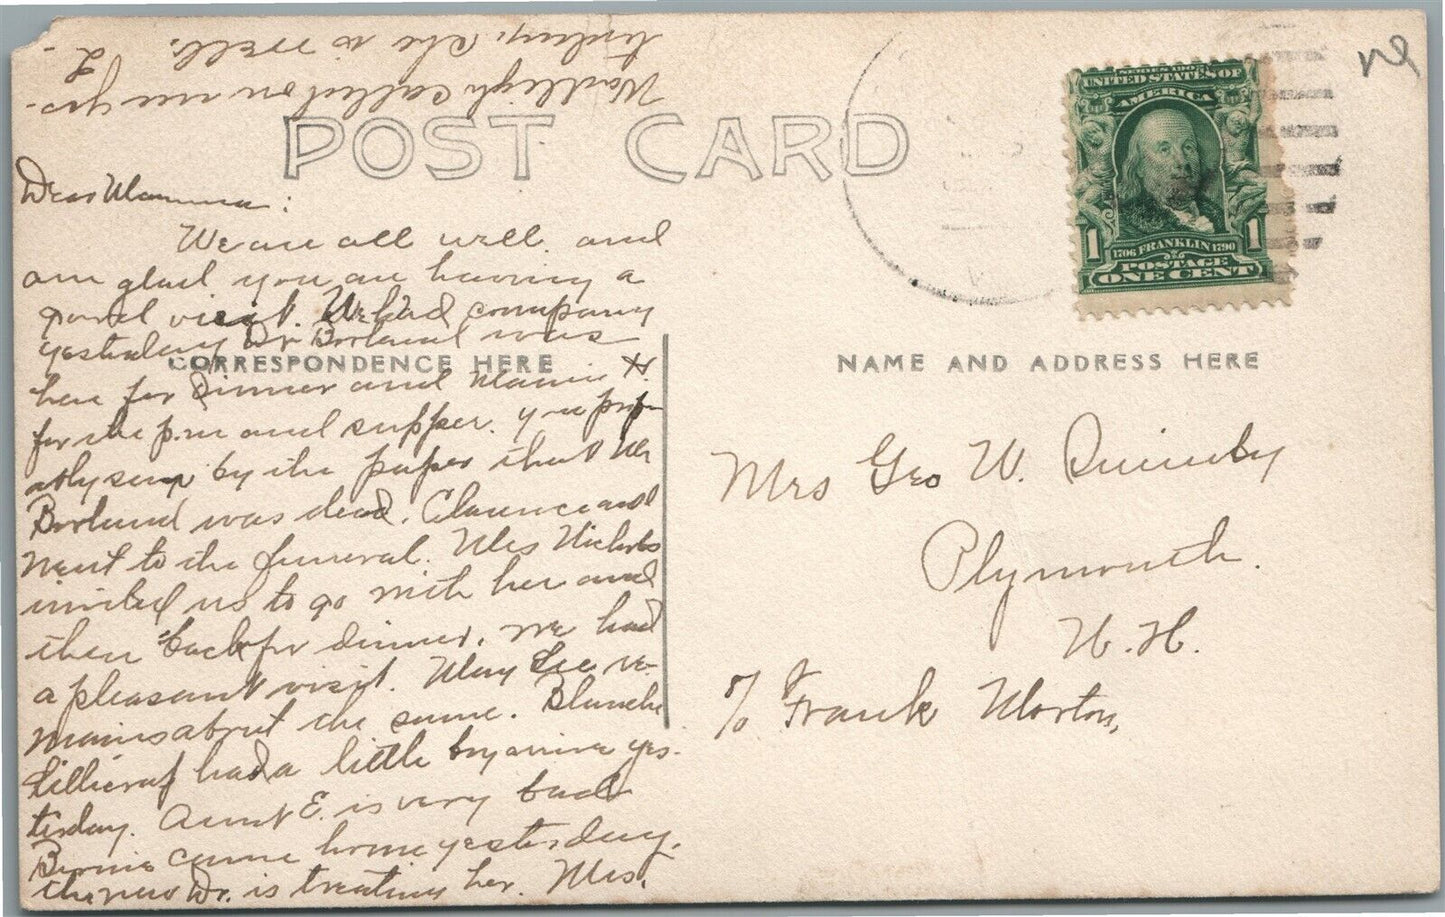 POST CARD
Dear Mamma:
We are all well. and
am glad you are having a
good visit. We had company
yesterday Dr Borland was
CORRESPONDENCE HERE
here for dinner and Mamie H.
for the p.m and supper. you prob
ably saw by the paper that Mr
Borland was dead. Clarence and I
went to the funeral. Mrs Nichols
invited us to go with her and
then back for dinner. we had
a pleasant visit. May Lee re-
mains about the same. Blanche
had a little boy arrive yes-
terday. Aunt E. is very bad
Bernie came home yesterday.
the new Dr. is treating her. Mrs.
Wadleigh called on me yes-
terday, she is well.
L.
SERIES 1902
UNITED STATES OF
AMERICA
1 1
1706 FRANKLIN 1790
POSTAGE
ONE CENT
NAME AND ADDRESS HERE
Mrs Geo W. Quimby
Plymouth.
N. H.
c/o Frank Morton,